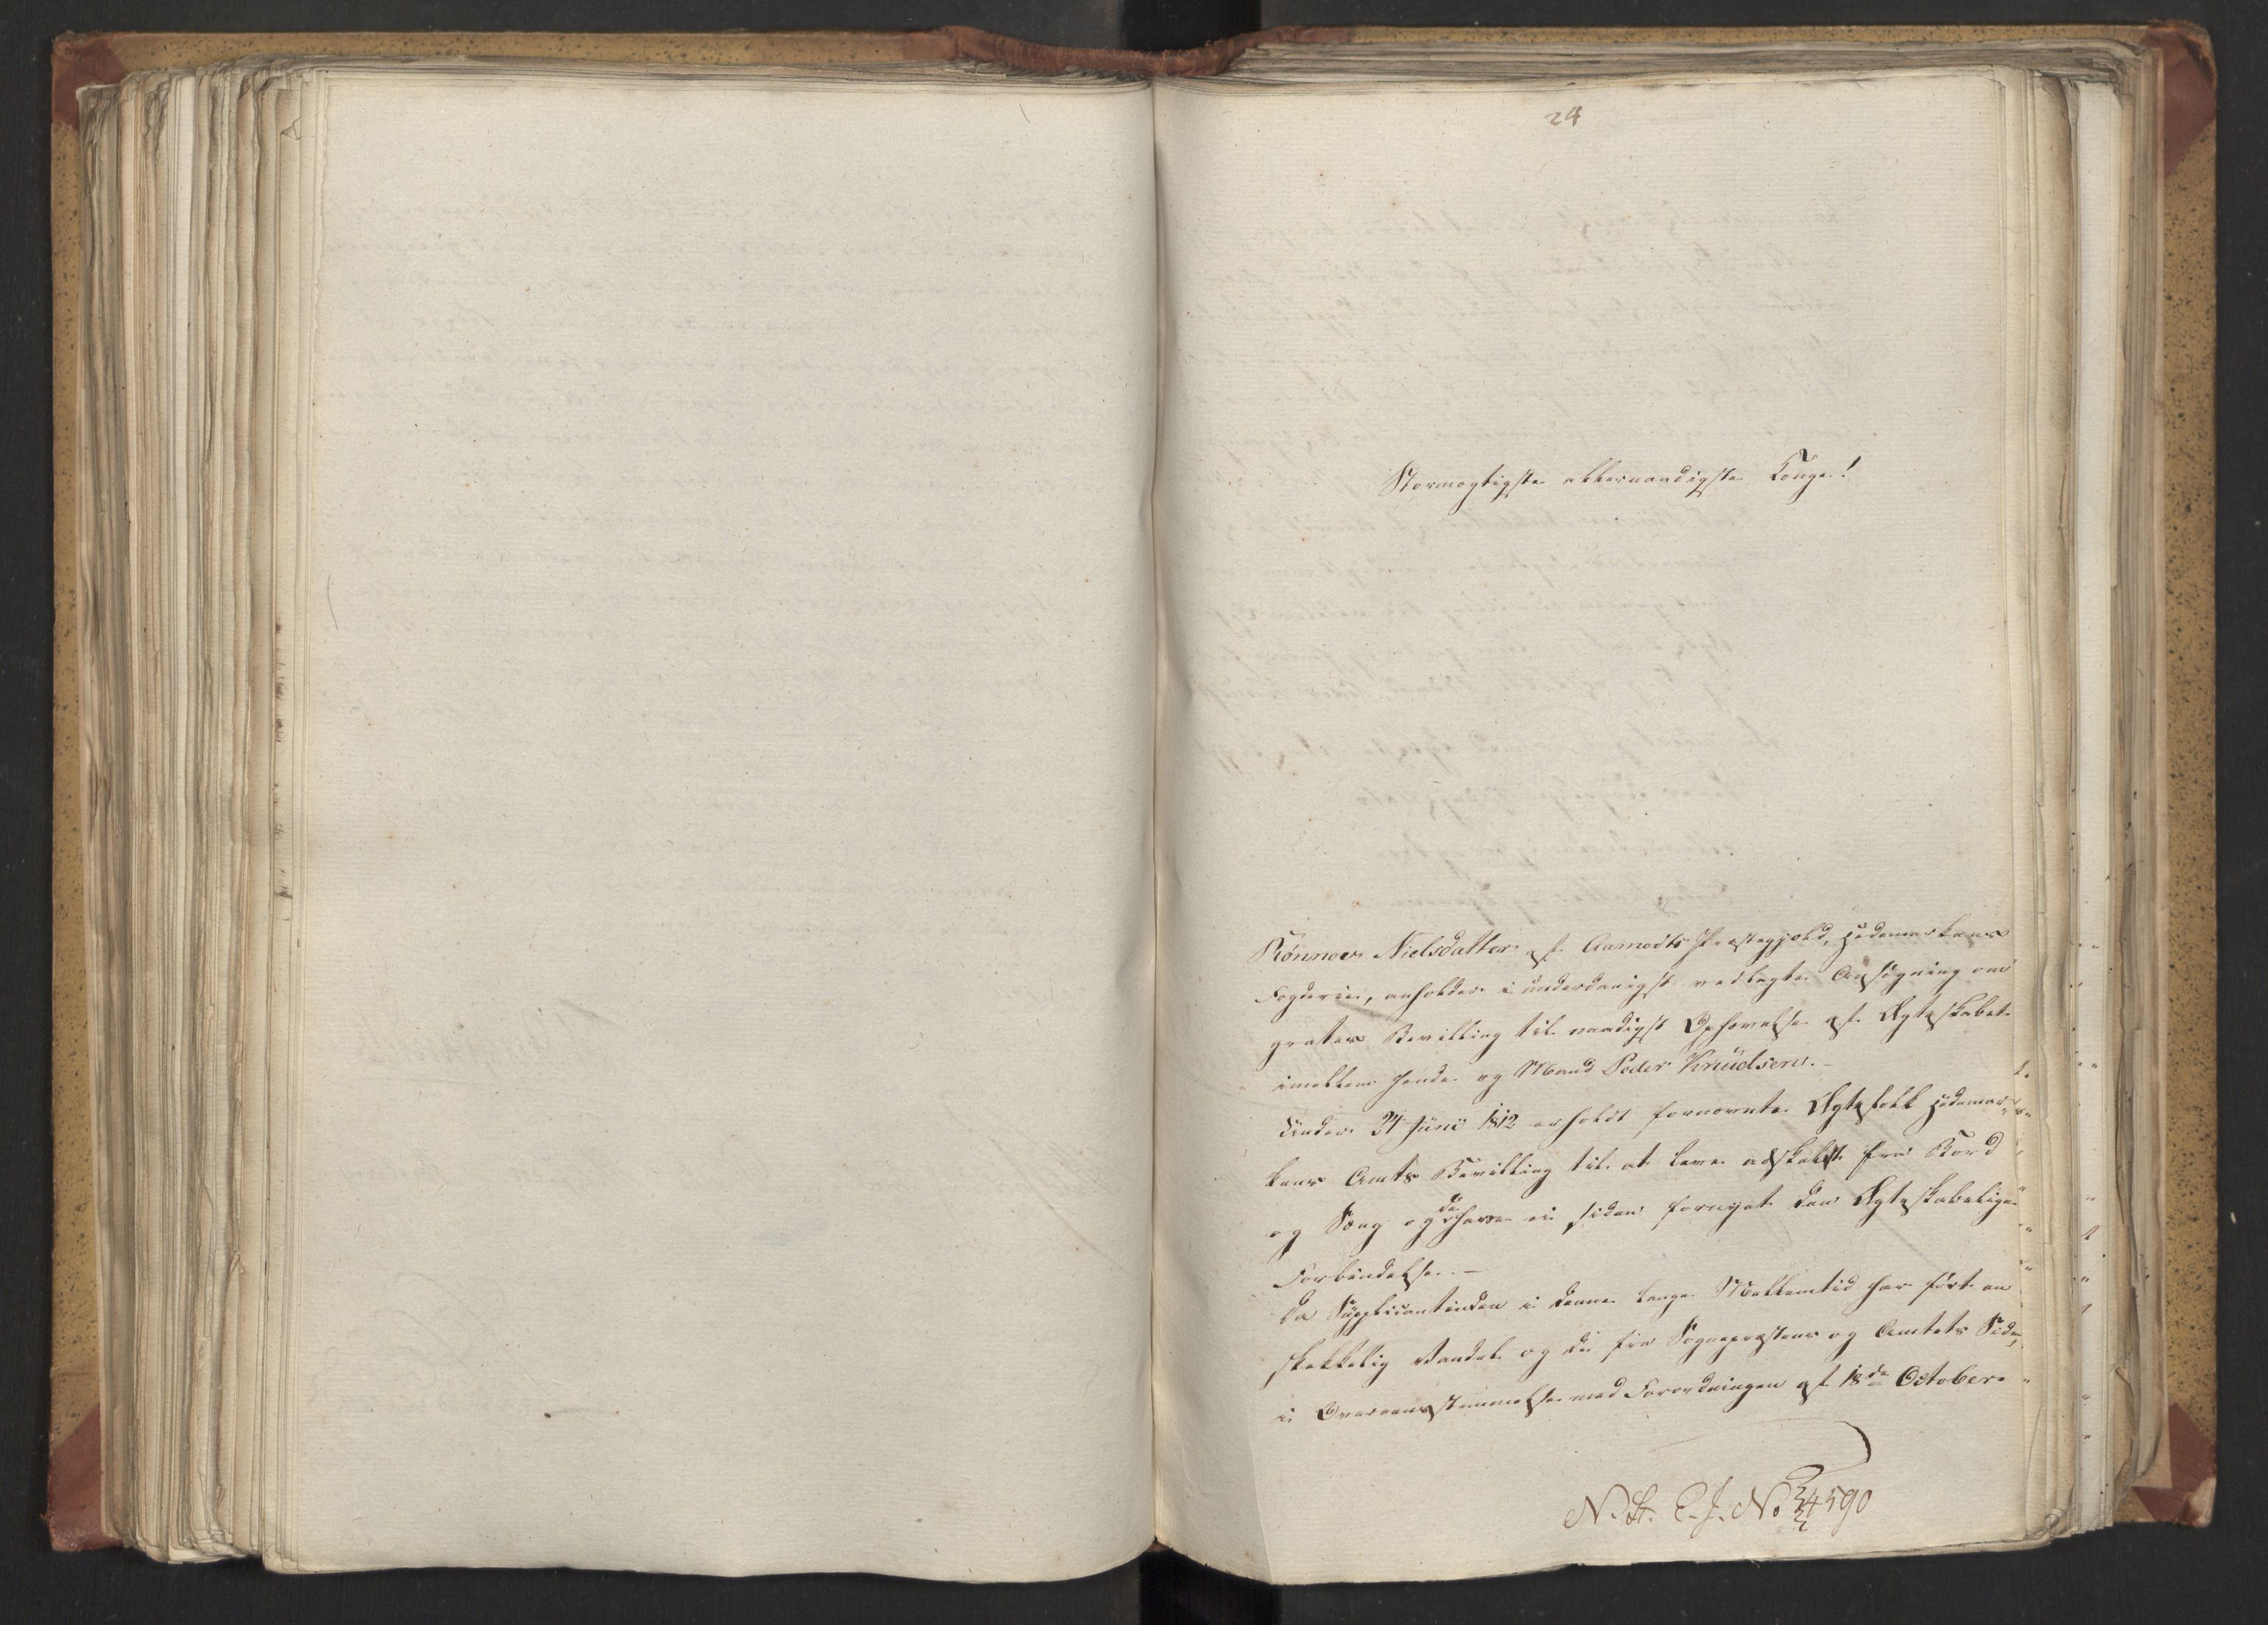 24
Stormægtigste allernaadigste Konge!
Rønnov Nielsdatter af Aamodts Præstegjeld, Hedemarkens
Fogderie, anholder i underdanigst vedlagte Ansøgning om
gratis Bevilling til naadigst Ophævelse af Ægteskabet
imellem hende og Mand Peder Knudsen.-
Under 24 Juni 1812 erholdt fornævnte Ægtefolk Hedemar-
kens Amts Bevilling til at leve adskildte fra Bord
og Seng og de have ei siden fornyet den Ægteskabelige
Forbindelse.-
Da Supplicantinden i denne lange Mellemtid har ført en
skikkelig Vandel og da fra Sognepræstens og Amtets Side,
i Overeensstemmelse med Forordningen af 18de October
N. St. E. J. No 4590